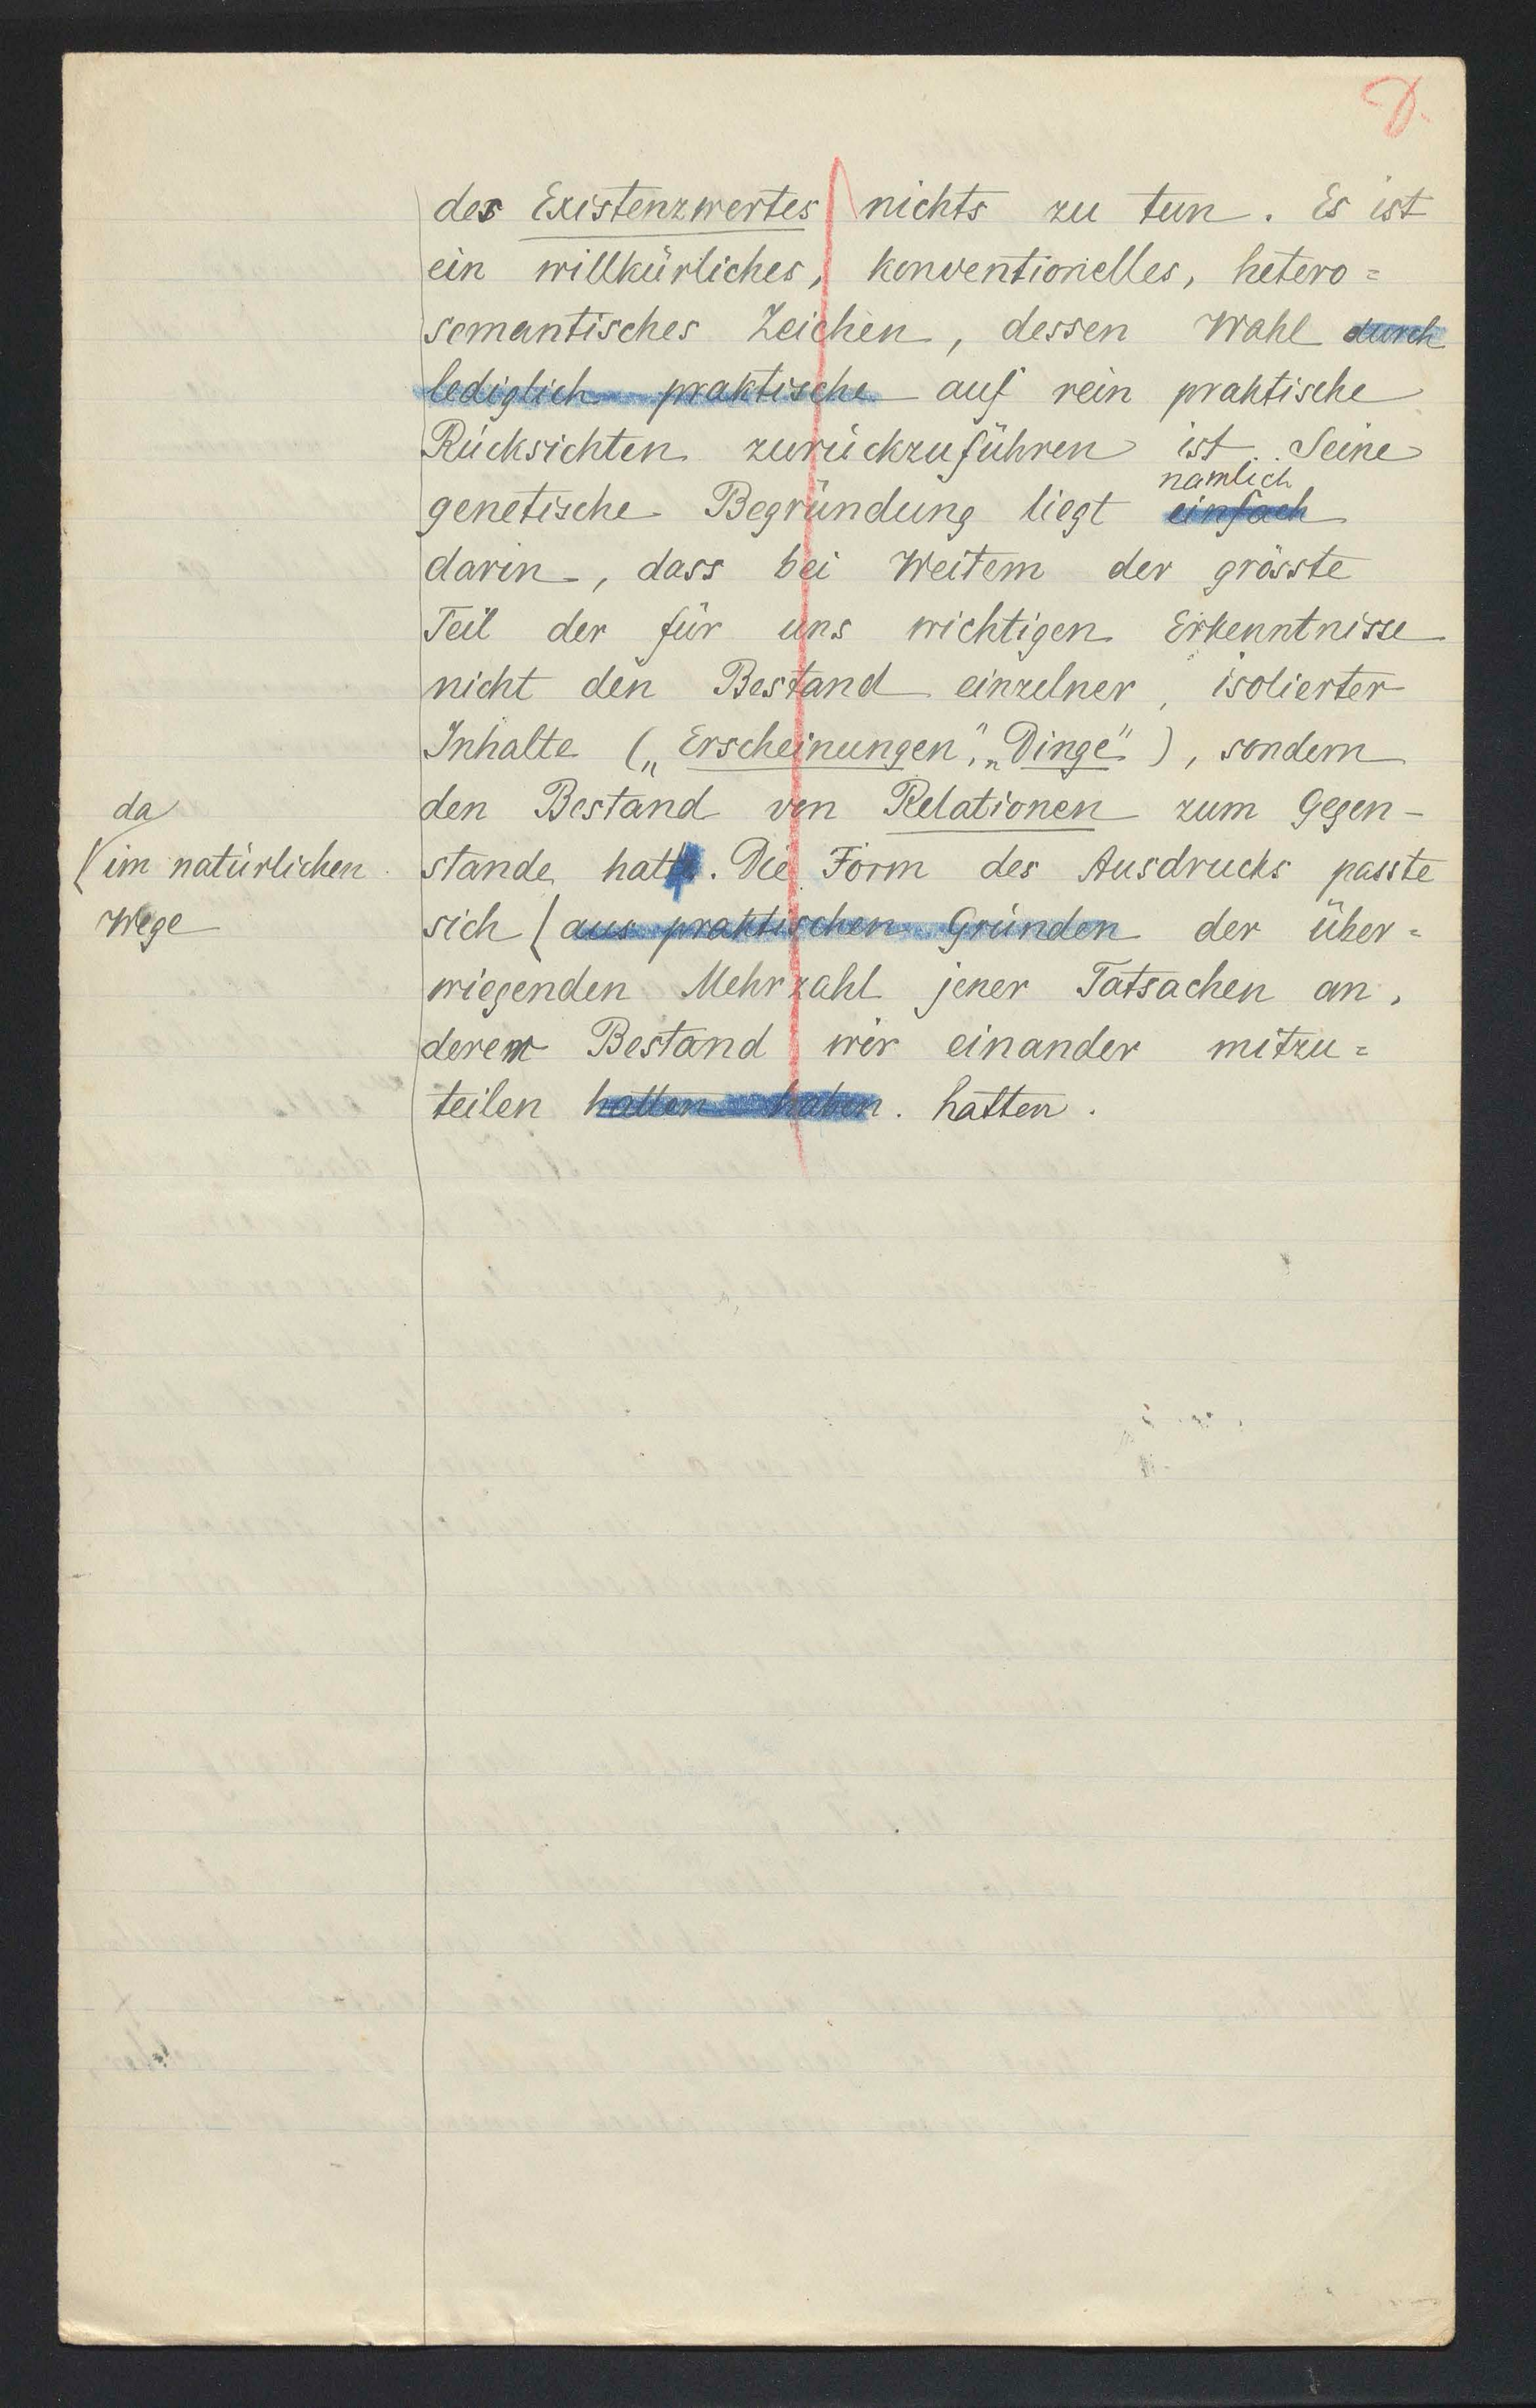 des Existenzwertes nichts zu tun. Es ist
ein willkürliches, konventionelles, hetero=
semantisches Zeichen, dessen Wahl durch
lediglich praktische auf rein praktische
Rücksichten zurückzuführen ist. Seine
nämlich
genetische Begründung liegt einfach
darin, dass bei Weitem der grösste
Teil der für uns wichtigen Erkenntnisse
nicht den Bestand einzelner, isolierter
Inhalte („Erscheinungen", „Dinge"), sondern
den Bestand von Relationen zum Gegen-
stande hat. Die Form des Ausdrucks passte
sich ( aus praktischen Gründen der über=
wiegenden Mehrzahl jener Tatsachen an,
deren Bestand wir einander mitzu=
teilen hatten haben. hatten.
da
( im natürlichen
Wege